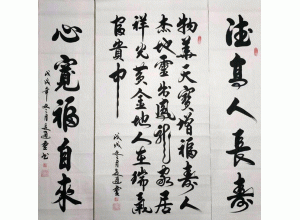 德高人長壽
物華天寶增福壽人
杰地靈出鳳龍家居
祥光黃金地人在瑞氣
富貴中
戊戌年
心寬福自來
戊戌年